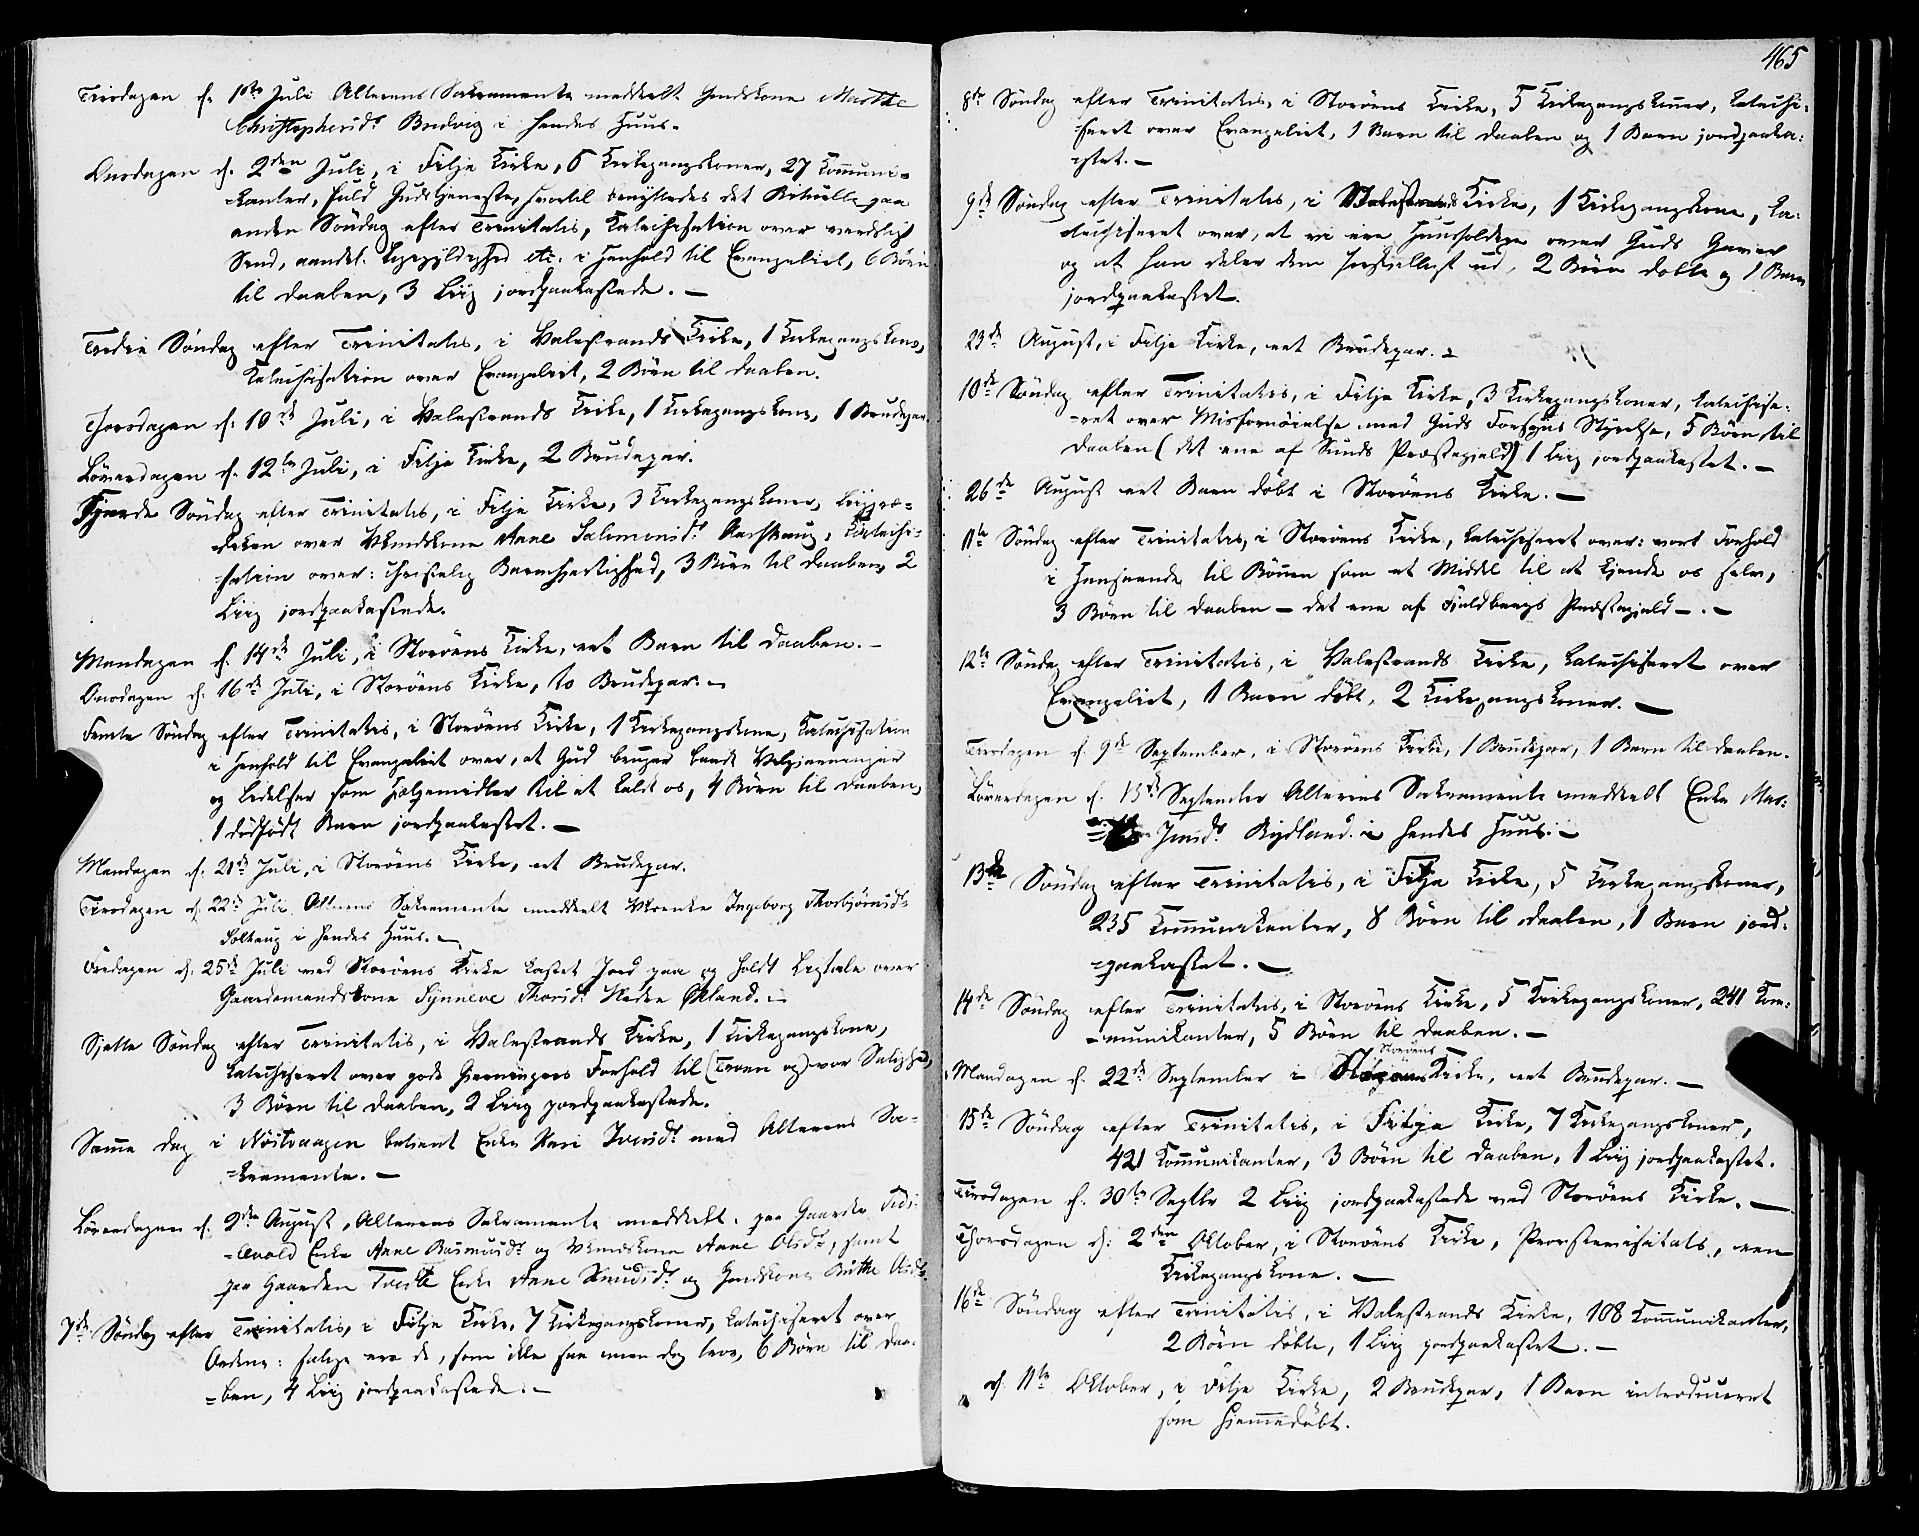 Tirsdagen d. 1ste Juli Alterens Sakramente meddeelt Huuskone Marthe
Christophersdr. Bredvig i hendes Huus.
Onsdagen d. 2den Juli, i Fitje Kirke, 6 Kirkegangskoner, 27 Kommuni-
-kanter, fuld Gudstjeneste, hvortil benyttedes det Rituelle paa
anden Søndag efter Trinitatis, Katechisation over verdsligt
Sind, aandel. Ligegyldighed etc. i Henhold til Evangeliet, 6 Børn
til Daaben, 3 Liig jordpaakastede. —
Tredie Søndag efter Trinitatis, i Valestrands Kirke, 1 Kirkegangskone,
Katechisation over Evangeliet, 2 Børn til Daaben.
Thorsdagen d. 10de Juli, i Valestrands Kirke, 1 Kirkegangskone, 1 Brudepar.
Løverdagen d. 12te Juli, i Fitje Kirke, 2 Brudepar.
Fjerde Søndag efter Trinitatis, i Fitje Kirke, 3 Kirkegangskoner, Liigpræ-
-diken over Anne Salomonsdr. Katechi-
-sation over: christelig Barmhjertighed, 3 Børn til Daaben, 2
Liig jordpaakastede.
Mandagen d. 14de Juli, i Storøens Kirke, eet Barn til Daaben. —
Onsdagen d. 16de Juli, i Storøens Kirke, to Brudepar. —
Femte Søndag efter Trinitatis, i Storøens Kirke, 1 Kirkegangskone, Katechisation
i Henhold til Evangeliet over, at Gud bruger baade Velgjerninger
og Lidelser som Hjelpemidler til at kalde os, 4 Børn til Daaben,
1 dødfødt Barn jordpaakastet. —
Mandagen d. 21de Juli, i Storøens Kirke, eet Brudepar.
Tirsdagen d. 22de Juli Alterens Sakramente meddeelt Ingeborg Thorbjørnsdr.
i hendes Huus. —
Fredagen d. 25de Juli ved Storøens Kirke kastet Jord paa og holdt Ligtale over
Gaardmandskone Synneve Thorsdr. Nedre Økland. —
Sjette Søndag efter Trinitatis, i Valestrands Kirke, 1 Kirkegangskone,
katechiseret over gode Gjerningers Forhold til (Troen og) vor Salighed,
3 Børn til Daaben, 2 Liig jordpaakastede.
Samme Dag i Nøitvaagen betient Enke Kari Iversdr. med Alterens Sa-
-kramente. —
Løverdagen d. 2den August, Alterens Sakramente meddeelt. paa Gaarden
Enke Anne Rasmusdr. og Anne Olsdr., samt
paa Gaarden Enke Anne Knudsdr. og Huuskone Brithe Olsdr.
7de Søndag efter Trinitatis, i Fitje Kirke, 7 Kirkegangskoner, katechiseret over
Ordene: salige ere de, som ikke see men dog troe, 6 Børn til Daa-
-ben, 4 Liig jordpaakastede. —
465
8de Søndag efter Trinitatis, i Storøens Kirke, 5 Kirkegangskoner, katechi-
-seret over Evangeliet, 1 Barn til Daaben og 1 Barn jordpaaka-
-stet. —
9de Søndag efter Trinitatis, i Valestrands Kirke, 1 Kirkegangskone, ka-
-techiseret over, at vi ere Huusholdere over Guds Gaver
og at han deler dem forskjelligt ud, 2 Børn døbte og 1 Barn
jordpaakastet.
23de August, i Fitje Kirke, eet Brudepar. —
10de Søndag efter Trinitatis, i Fitje Kirke, 3 Kirkegangskoner, katechise-
-ret over Misfornøielse med Guds Forsyns Styrelse, 5 Børn til
Daaben (det ene af Sunds Præstegjeld) 1 Liig jordpaakastet. —
26de August eet Barn døbt i Storøens Kirke. —
11te Søndag efter Trinitatis, i Storøens Kirke, katechiseret over: vort Forhold
i Henseende til Bønnen som et Middel til at kjende os selv,
3 Børn til Daaben — det ene af Fjeldbergs Præstegjeld —. —
12te Søndag efter Trinitatis, i Valestrands Kirke, katechiseret over
Evangeliet, 1 Barn døbt, 2 Kirkegangskoner. —
Tirsdagen d. 9de September, i Storøens Kirke, 1 Brudepar, 1 Barn til Daaben.
Løverdagen d. 13de September Alterens Sakramente meddeelt Enke Mar-
Rydland i hendes Huus. —
13de Søndag efter Trinitatis, i Fitje Kirke, 5 Kirkegangskoner,
235 Kommunikanter, 8 Børn til Daaben, 1 Barn jord-
-paakastet. —
14de Søndag efter Trinitatis, i Storøens Kirke, 5 Kirkegangskoner, 241 Kom-
-munikanter, 5 Børn til Daaben. —
Mandagen d. 22de September i Storøens Kirke, eet Brudepar. —
15de Søndag efter Trinitatis, i Fitje Kirke, 7 Kirkegangskoner,
421 Kommunikanter, 3 Børn til Daaben, 1 Liig jordpaakastet.
Tirsdagen d. 30te Septbr 2 Liig jordpaakastede ved Storøens Kirke. —
Thorsdagen d. 2den Oktober, i Storøens Kirke, Provstevisitats, een
Kirkegangskone. —
16de Søndag efter Trinitatis, i Valestrands Kirke, 108 Kommunikanter,
2 Børn døbte, 1 Liig jordpaakastet. —
d. 11te Oktober, i Fitje Kirke, 2 Brudepar, 1 Barn introduceret
som hjemmedøbt.